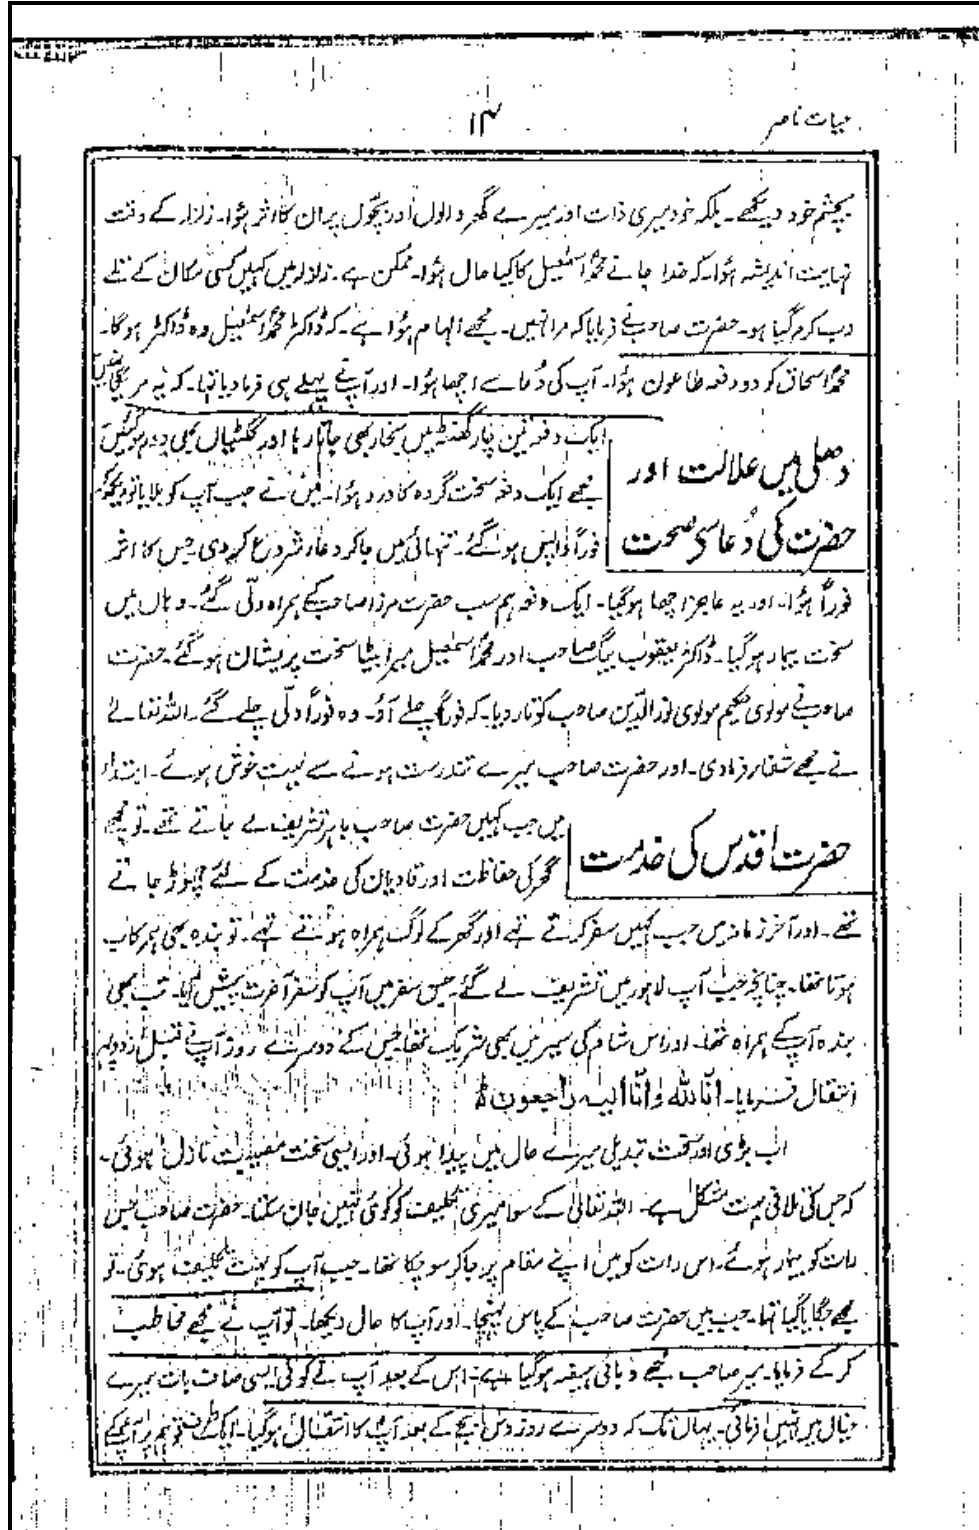 حیات ناصر
۱۴
بچشم خود دیکھے۔ بلکہ خود میری ذات اور میرے گھر والوں اور بچوں پر ان کا اثر ہؤا۔ زلزلہ کے وقت
نہایت اندیشہ ہؤا۔ کہ خدا جانے محمدؐ اسمٰعیل کا کیا حال ہؤا۔ ممکن ہے۔ زلزلہ میں کہیں کسی مکان کے تلے
دب کر مر گیا ہو۔ حضرت صاحب نے فرمایا کہ مرا نہیں۔ مجھے الہام ہؤا ہے۔ کہ ڈاکٹر محمدؐ اسمٰعیل وہ ڈاکٹر ہو گا۔
محمدؐ اسحاق کو دو دفعہ طاعون ہؤا۔ آپ کی دُعا سے اچھا ہؤا۔ اور آپ نے پہلے ہی فرما دیا تہا۔ کہ یہ مریگا نہیں
دھلی میں علالت اور
حضرت کی دُعا سی صحت
ایک دفعہ تین چار گھنٹہ میں بخار بھی جاتا رہا اور گلٹیاں بھی دور ہو گئیں
مجھے ایک دفعہ سخت گردہ کا درد ہؤا۔ میں نے جب آپ کو بلایا تو دیکھکر
فوراً واپس ہو گئے۔ تنہائی میں جا کر دعا شروع کر دی جس کا اثر
فوراً ہؤا۔ اور یہ عاجز اچھا ہو گیا۔ ایک دفعہ ہم سب حضرت مرزا صاحب کے ہمراہ دلّی گئے۔ وہاں میں
سخت بیمار ہو گیا۔ ڈاکٹر یعقوب بیگ صاحب اور محمدؐ اسمٰعیل میرا بیٹا سخت پریشان ہو گئے۔ حضرت
صاحب نے مولوی حکیم مولوی نور الدّین صاحب کو تار دیا۔ کہ فوراً چلے آؤ۔ وہ فوراً دلّی چلے گئے۔ اللہ تعالےٰ
نے مجھے شفاء فرما دی۔ اور حضرت صاحب میرے تندرست ہونے سے بہت خوش ہوئے۔ ابتداء
حضرت اقدس کی خدمت
میں جب کہیں حضرت صاحب باہر تشریف لے جاتے تھے۔ تو مجھے
گھر کی حفاظت اور قادیان کی خدمت کے لئے چھوڑ جاتے
تھے۔ اور آخر زمانہ میں جب کہیں سفر کرتے تھے اور گھر کے لوگ ہمراہ ہوتے تھے۔ تو بندہ بھی ہمرکاب
ہوتا تھا۔ چنانچہ جب آپ لاہور میں تشریف لے گئے۔ جس سفر میں آپ کو سفر آخرت پیش آیا۔ تب بھی
بندہ آپ کے ہمراہ تھا۔ اور اس شام کی سیر میں بھی شریک تھا جس کے دوسرے روز آپ نے قبل از دوپہر
انتقال فرمایا۔ انّا للہ وانّا الیہ راجعون
اب بڑی اور سخت تبدیل میرے حال میں پیدا ہوئی۔ اور ایسی سخت مصیبت نازل ہوئی۔
کہ جس کی تلافی بہت مشکل ہے۔ اللہ تعالیٰ کے سوا میری تکلیف کو کوئی نہیں جان سکتا۔ حضرت صاحب جس
رات کو بیمار ہوئے۔ اس رات کو میں اپنے مقام پر جا کر سو چکا تھا۔ جب آپ کو بہت تکلیف ہوئی۔ تو
مجھے جگایا گیا تہا۔ جب میں حضرت صاحب کے پاس پہنچا۔ اور آپ کا حال دیکھا۔ تو آپ نے مجھے مخاطب
کر کے فرمایا۔ میر صاحب مجھے وبائی ہیضہ ہو گیا ہے۔ اس کے بعد آپ نے کوئی ایسی صاف بات میرے
خیال میں نہیں فرمائی۔ یہاں تک کہ دوسرے روز دس بجے کے بعد آپ کا انتقال ہو گیا۔ ایک طرف تو ہم پر آپ کے